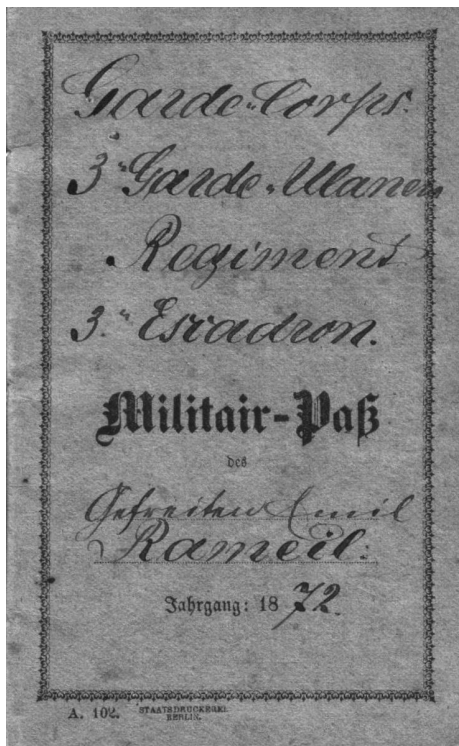 Garde-Corps.
3tes Garde-Ulanen
Regiment
3te Escadron.
Militair-Paß
des
Gefreiten Emil
Rameil.
Jahrgang: 1872.
A. 102. STAATSDRUCKEREI
BERLIN.